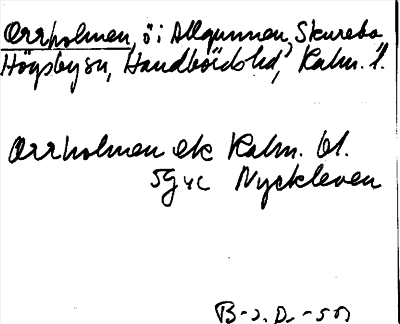 Orrholmen, ö i Allgunnen, Skurebo
Högsby sn, Handbörds hd, Kalm. l.
Orrholmen ek Kalm. bl.
5G4c Nyckleven
B-J. D. -50